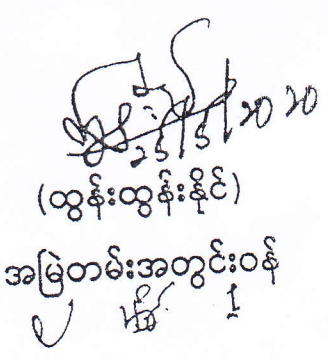 25/5/2020
(ထွန်းထွန်းနိုင်)
အမြဲတမ်းအတွင်းဝန်